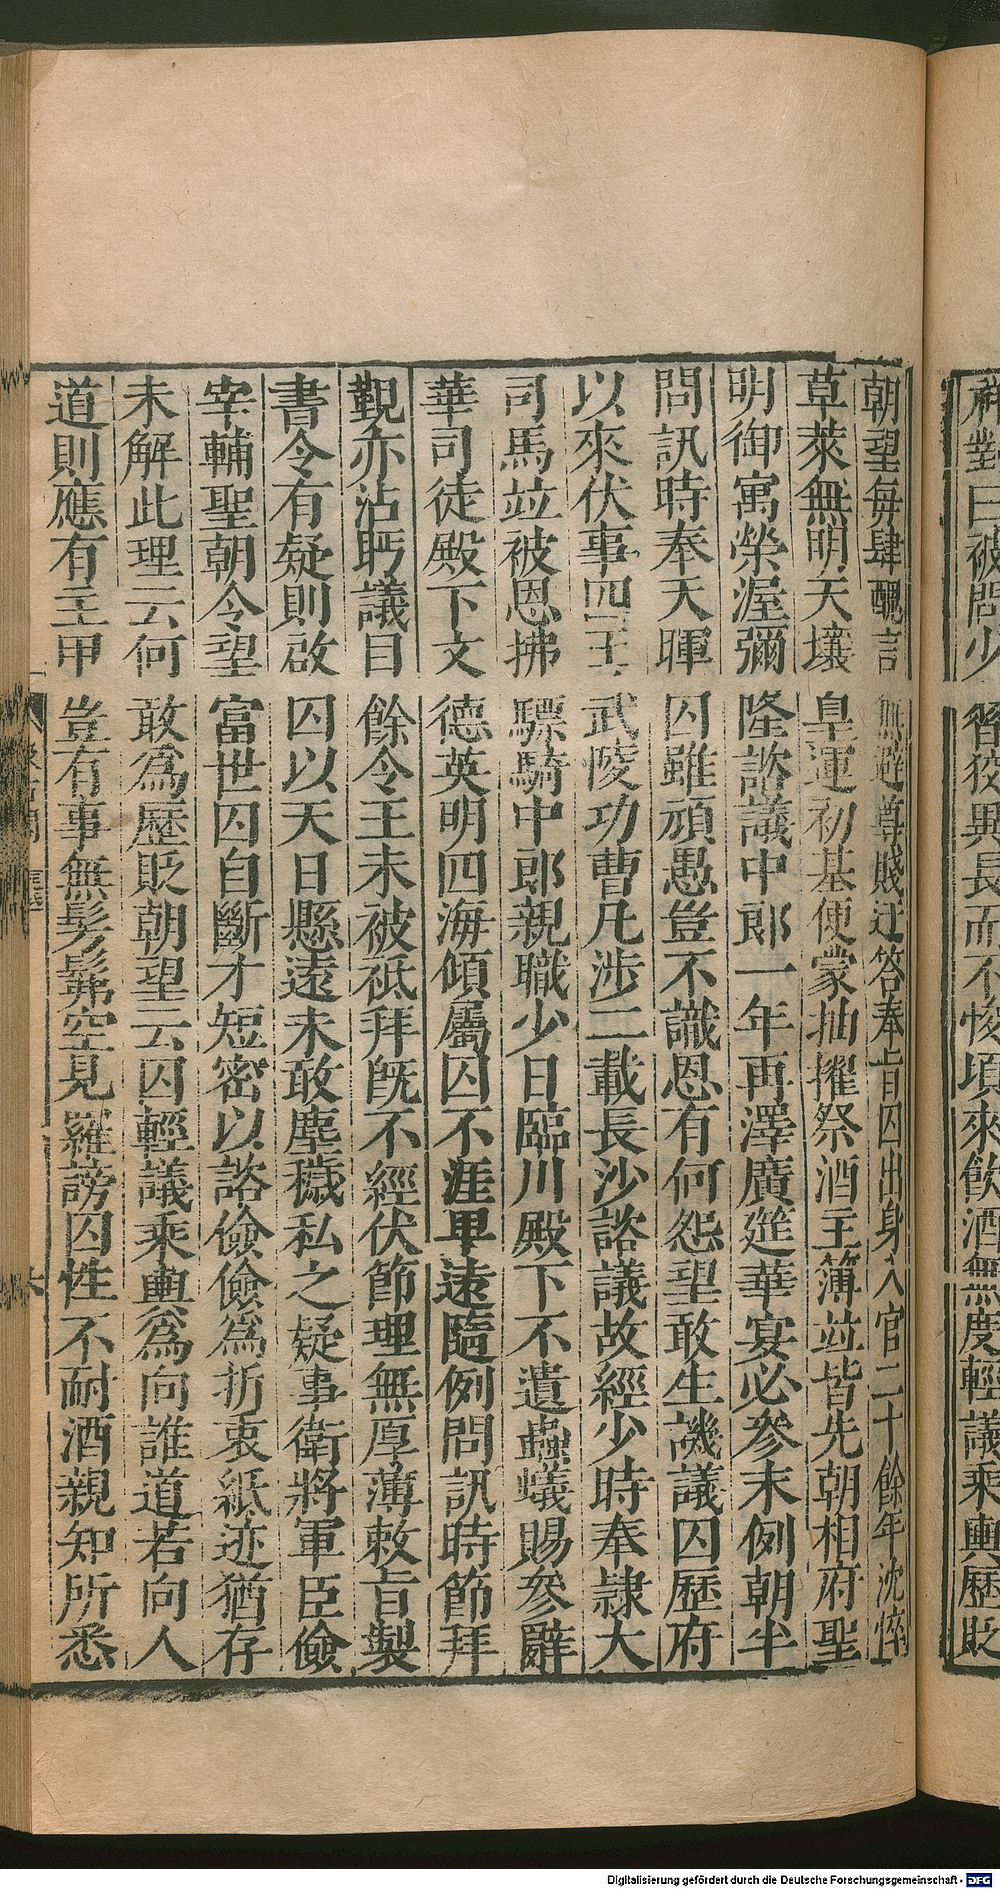 禕對曰被問少習狡異長而不悛頃來飲酒無度輕議乘輿歷貶
朝望每肆醜言無避尊賤迂答奉旨囚出身入官二十餘年沈悴
草萊無明天壤皐運初基便蒙抽擢祭酒主簿並皆先朝相府聖
明御寓榮渥彌隆諮議中郎一年再澤廣筵華宴必參末例朝半
問訊時奉天暉囚雖頑愚豈不識恩有何怨望敢生譏議囚歷府
以來伏事四王武陵功曹凡涉二載長沙諮議故經少時奉隷大
司馬並被恩拂驃騎中郎親職少日臨川殿下不遺蟲蟻賜參辭
華司徒殿下文德英明四海傾屬囚不涯卑遠隨例問訊時節拜
覲亦沾眄議目餘令王未被祗拜旣不經伏節理無厚薄敕旨製
書令有疑則啟囚以天日懸遠未敢塵穢私之疑事衛將軍臣儉
宰輔聖朝令望當世囚自斷才短密以諮儉儉爲折衷紙迹猶存
未解此理云何敢爲歷貶朝望云囚輕議乘輿爲向誰道若向人
道則應有主甲豈有事無髣髴空見羅謗囚性不耐酒親知所悉
Digitalisierung gefördert durch die Deutsche Forschungsgemeinschaft - DFG